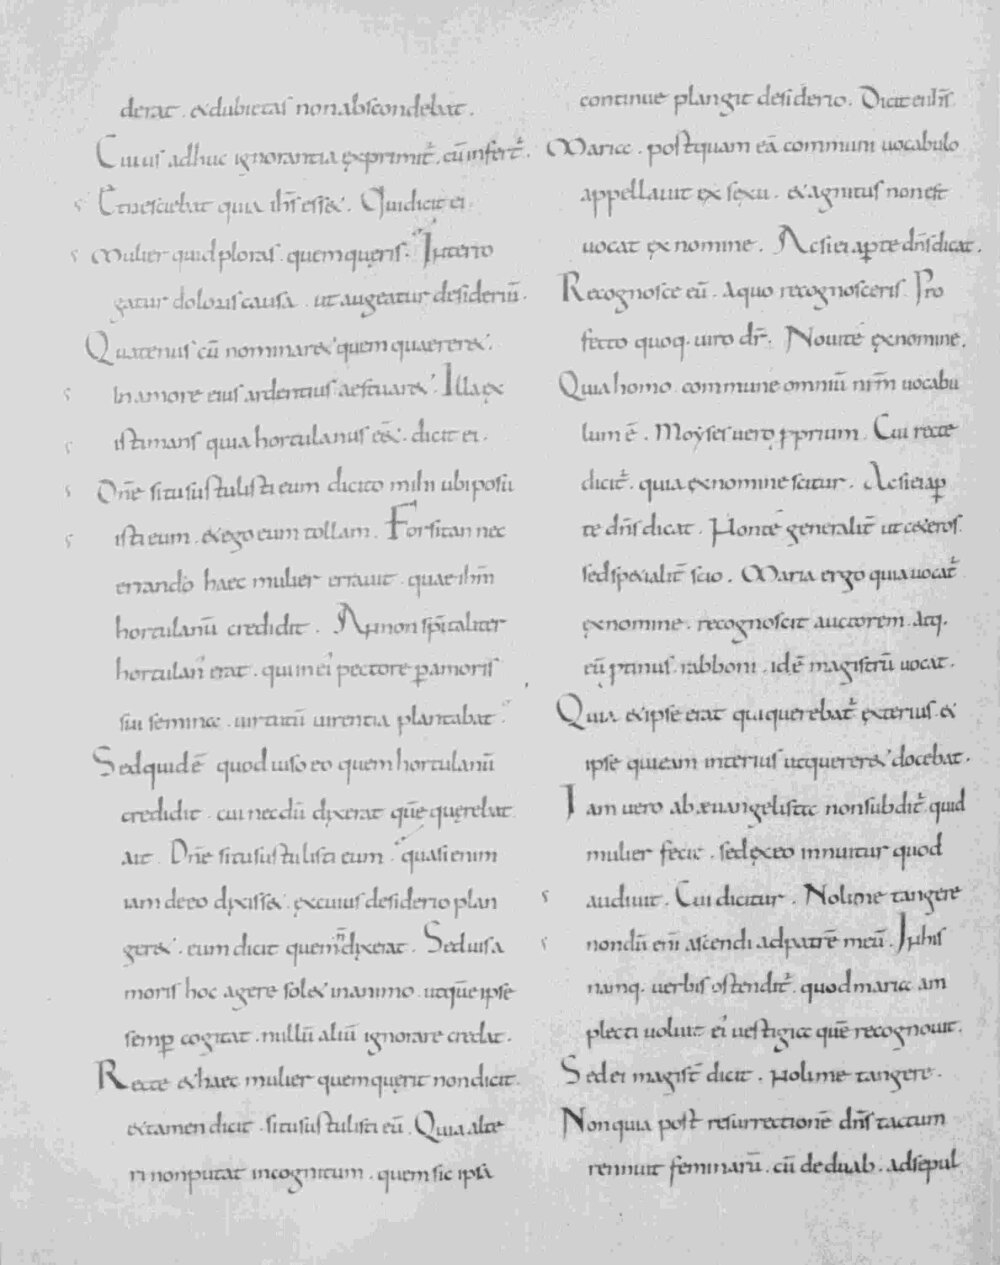 derat . & dubietas non abscondebat .
Cuius adhuc ignorantia exprimit᷑ . cū infert᷑ .
Et nesciebat quia ih̄s ess& . Qui dicit ei .
Mulier quid ploras . quem quęris . Interro
gatur doloris causa . ut augeatur desideriū .
Quatenus cū nominar& quem quaerer& .
In amore eius ardentius aestuar& . Illa ex
istimans quia hortulanus ēē& . dicit ei .
Dn̄e si tu sustulisti eum dicito mihi ubi posui
isti eum . & ego eum tollam . Forsitan nec
errando haec mulier errauit . quae ih̄m
hortulanū credidit . An non sp̄italiter
hortulan' erat . qui in ei' pectore ꝑ amoris
sui semina . uirtutū uirentia plantabat .
Sed quid ē quod uiso eo quem hortulanū
credidit . cui necdū dixerat quē quęrebat
ait . Dn̄e si tu sustulisti eum . quasi enim
iam de eo dixiss& . ex cuius desiderio plan
ger& . eum dicit quem n̄ dixerat . Sed uis a
moris hoc agere sol& in animo . ut quē ipse
semꝑ cogitat . nullū aliū ignorare credat .
Recte & haec mulier quem quęrit non dicit .
et tamen dicit . si tu sustulisti eū . Quia alte
ri non putat incognitum . quem sic ipsa
continue plangit desiderio . Dicit ei ih̄s
Maria . postquam eā communi uocabulo
appellauit ex sexu . & agnitus non est
uocat ex nomine . Ac si ei aꝑte dn̄s dicat .
Recognosce eū . a quo recognosceris . Pro
fecto quoq . uiro dr̄ . Noui te ex nomine .
Quia homo . commune omniū nr̄m uocabu
lum ē . Moẏses uero ꝓprium . Cui recte
dicit᷑ . quia ex nomine scitur . Ac si ei aꝑ
te dn̄s dicat . Non te generalit̄ ut ceteros .
sed specialit̄ scio . Maria ergo quia uocat᷑
ex nomine . recognoscit auctorem . atq .
eū ꝓtinus . rabboni . idē magistrū uocat .
Quia & ipse erat qui querebat᷑ exterius . &
ipse qui eam interius ut querer& docebat .
Iam uero ab æuangelista non subdit᷑ . quid
mulier fecit . sed ex eo innuitur quod
audiuit . Cui dicitur . Noli me tangere
nondū eni᷑ ascendi ad patrē meū . In his
namq . uerbis ostendit᷑ . quod maria am
plecti uoluit ei' uestigia quē recognouit .
Sed ei magist̄ dicit . Noli me tangere .
Non quia post resurrectionē dn̄s tactum
rennuit feminarū . cū de duab . ad sepul